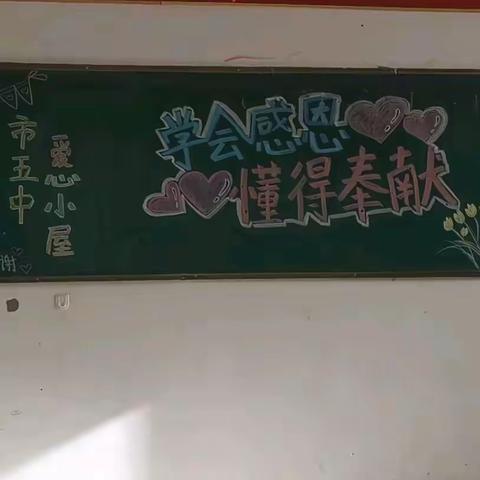 市五中
爱心小屋
谢
学会感恩
懂得奉献